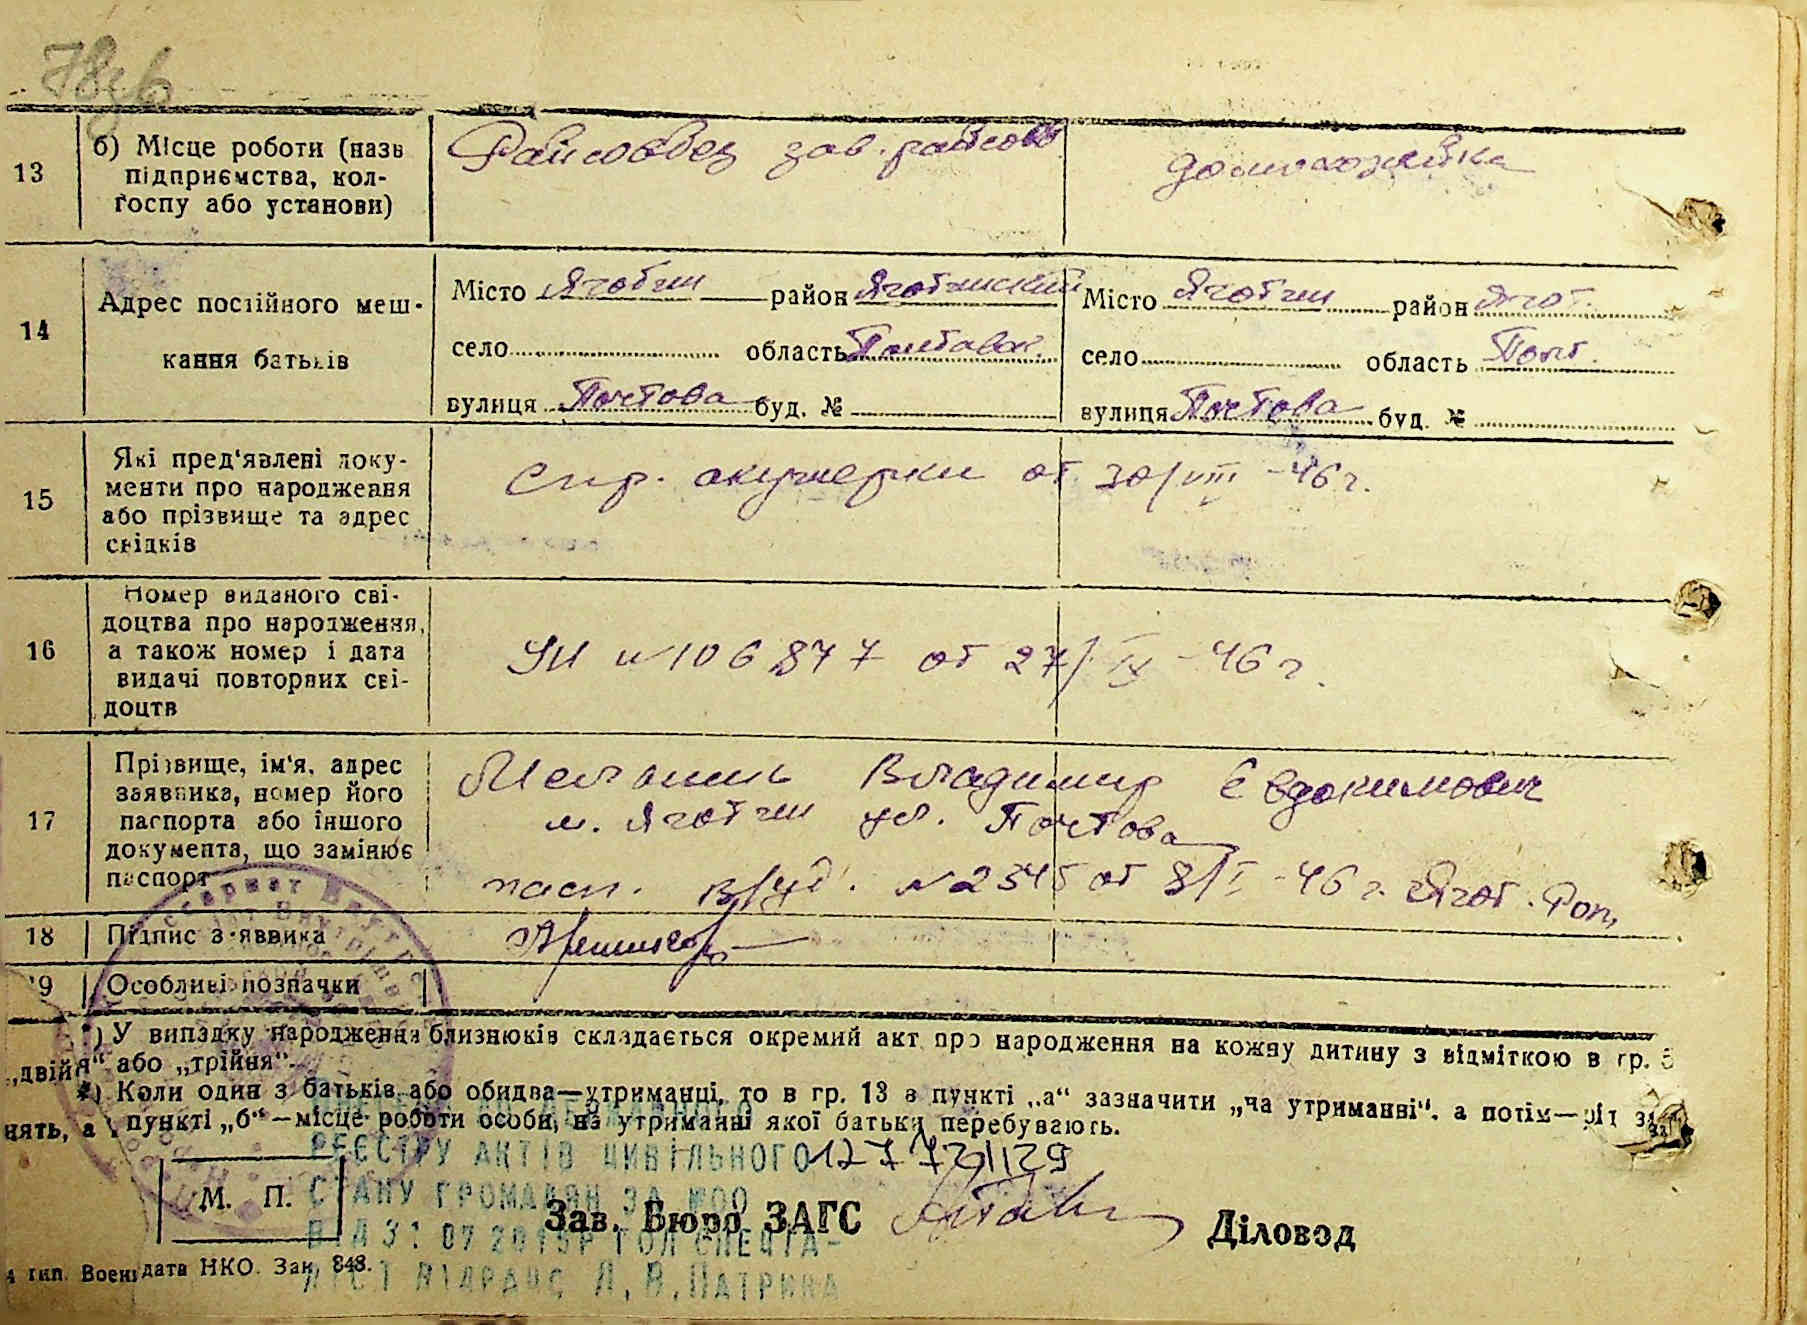 13
б) Місце роботи (назв
підприємства, кол-
госпу або установи)
зав.
домохозяйка
14
Адрес постійного меш-
кання батьків
Місто Яготин район Яготинский
село область Полтавск.
вулиця Почтова буд. №
Місто Яготин район Ягот.
село область Полт.
вулиця Почтова буд. №
15
Які пред'явлені доку-
менти про народження
або прізвище та адрес
свідків
Спр. акушерки от 30/VIII -46 г.
16
Номер виданого сві-
доцтва про народження,
а також номер і дата
видачі повторних сві-
доцтв
№ 106877 от 27/IX -46 г.
17
Прізвище, ім'я, адрес
заявника, номер його
паспорта або іншого
документа, що замінює
паспорт
Владимир Євдокимович
м. Яготин ул. Почтова
пасп. № 2345 от 8/I -46 г. Ягот.
18
Підпис заявника
19
Особливі позначки
*) У випадку народження близнюків складається окремий акт про народження на кожну дитину з відміткою в гр. 5
„двійня“ або „трійня“.
*) Коли один з батьків або обидва—утриманці, то в гр. 13 в пункті „а“ зазначити „на утриманні“, а потім—рід
нять, а пункті „б“—місце роботи особи, на утриманні якої батьки перебувають.
РЕЄСТРУ АКТІВ ЦИВІЛЬНОГО
СТАНУ ГРОМАДЯН ЗА №00
ВІД 31 07 2015Р ГОЛ СПЕЦІА-
ЛІСТ
М. П.
Зав. Бюро ЗАГС
Діловод
тип. Воениздата НКО. Зак. 848.